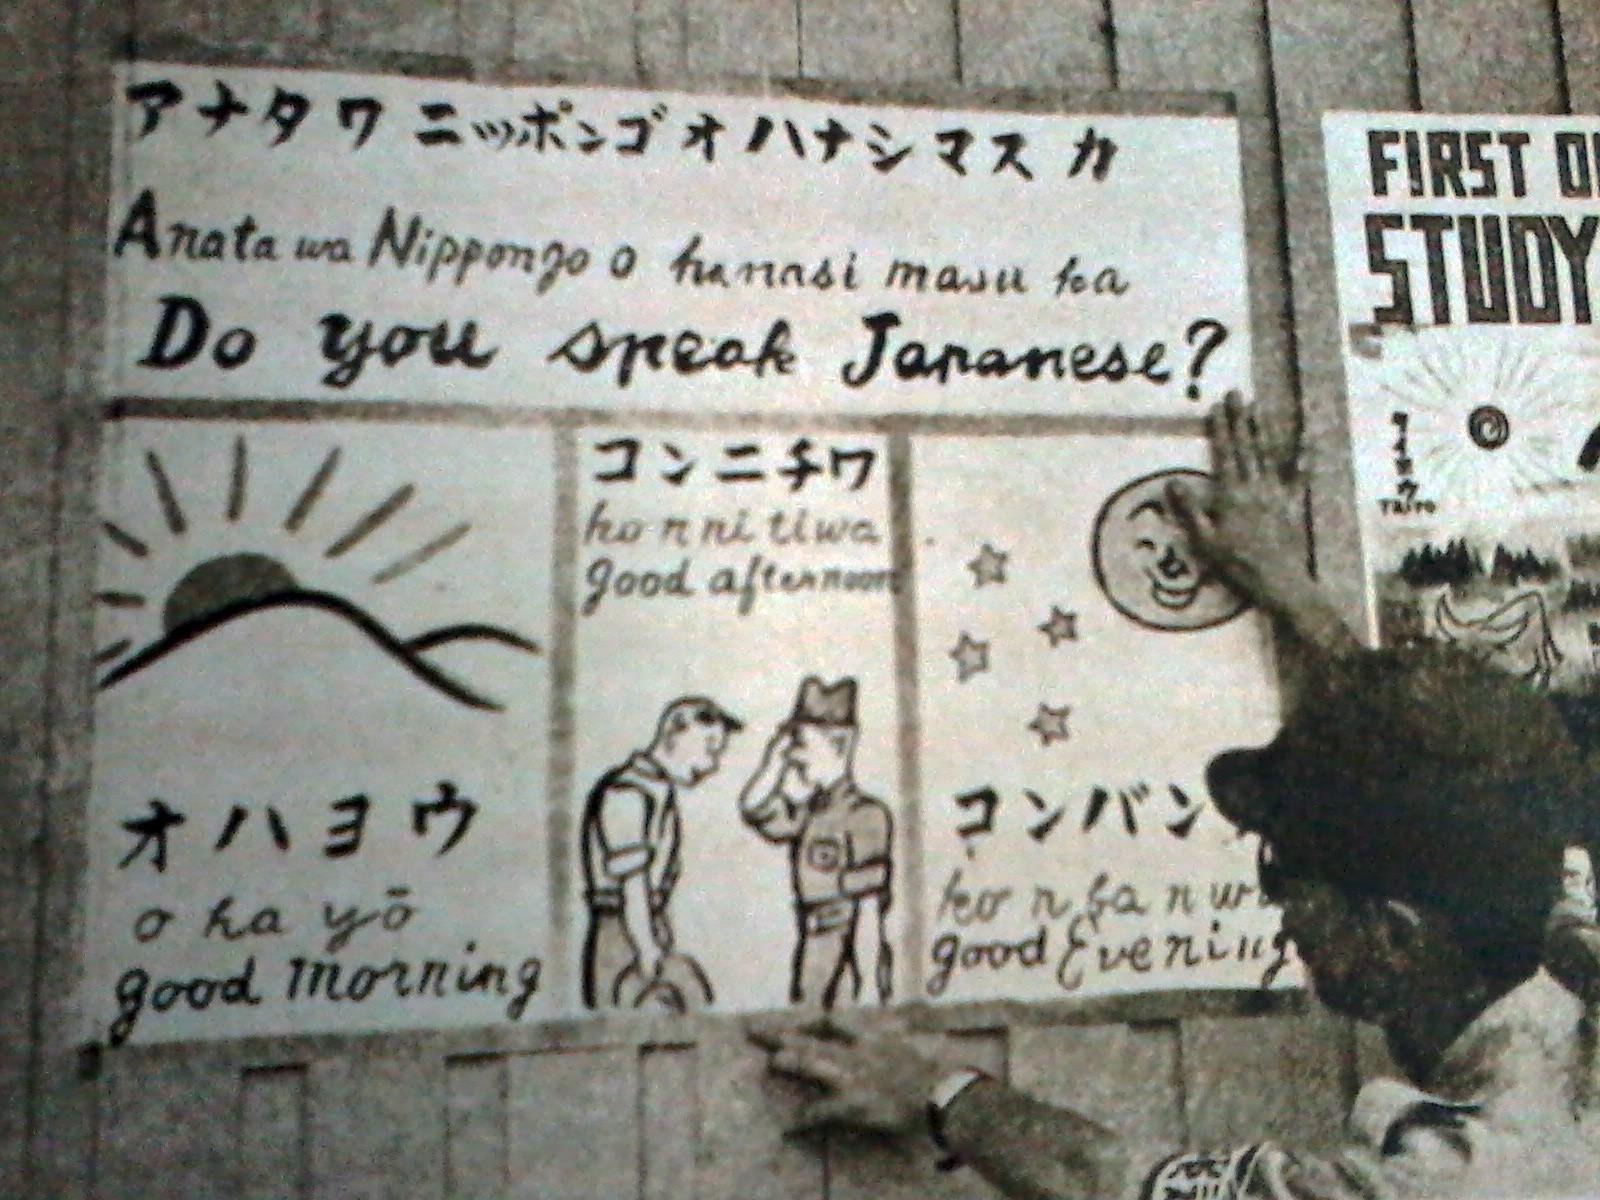 アナタワ ニッポンゴオハナシマス カ
Anata wa Nippongo o hanasi masu ka
Do you speak Japanese?
オハヨウ
o ha yō
good morning
コンニチワ
ko n ni ti wa
good afternoon
コンバン
ko n ba n
good Evening
FIRST
STUDY
タイヨウ
TAIYO